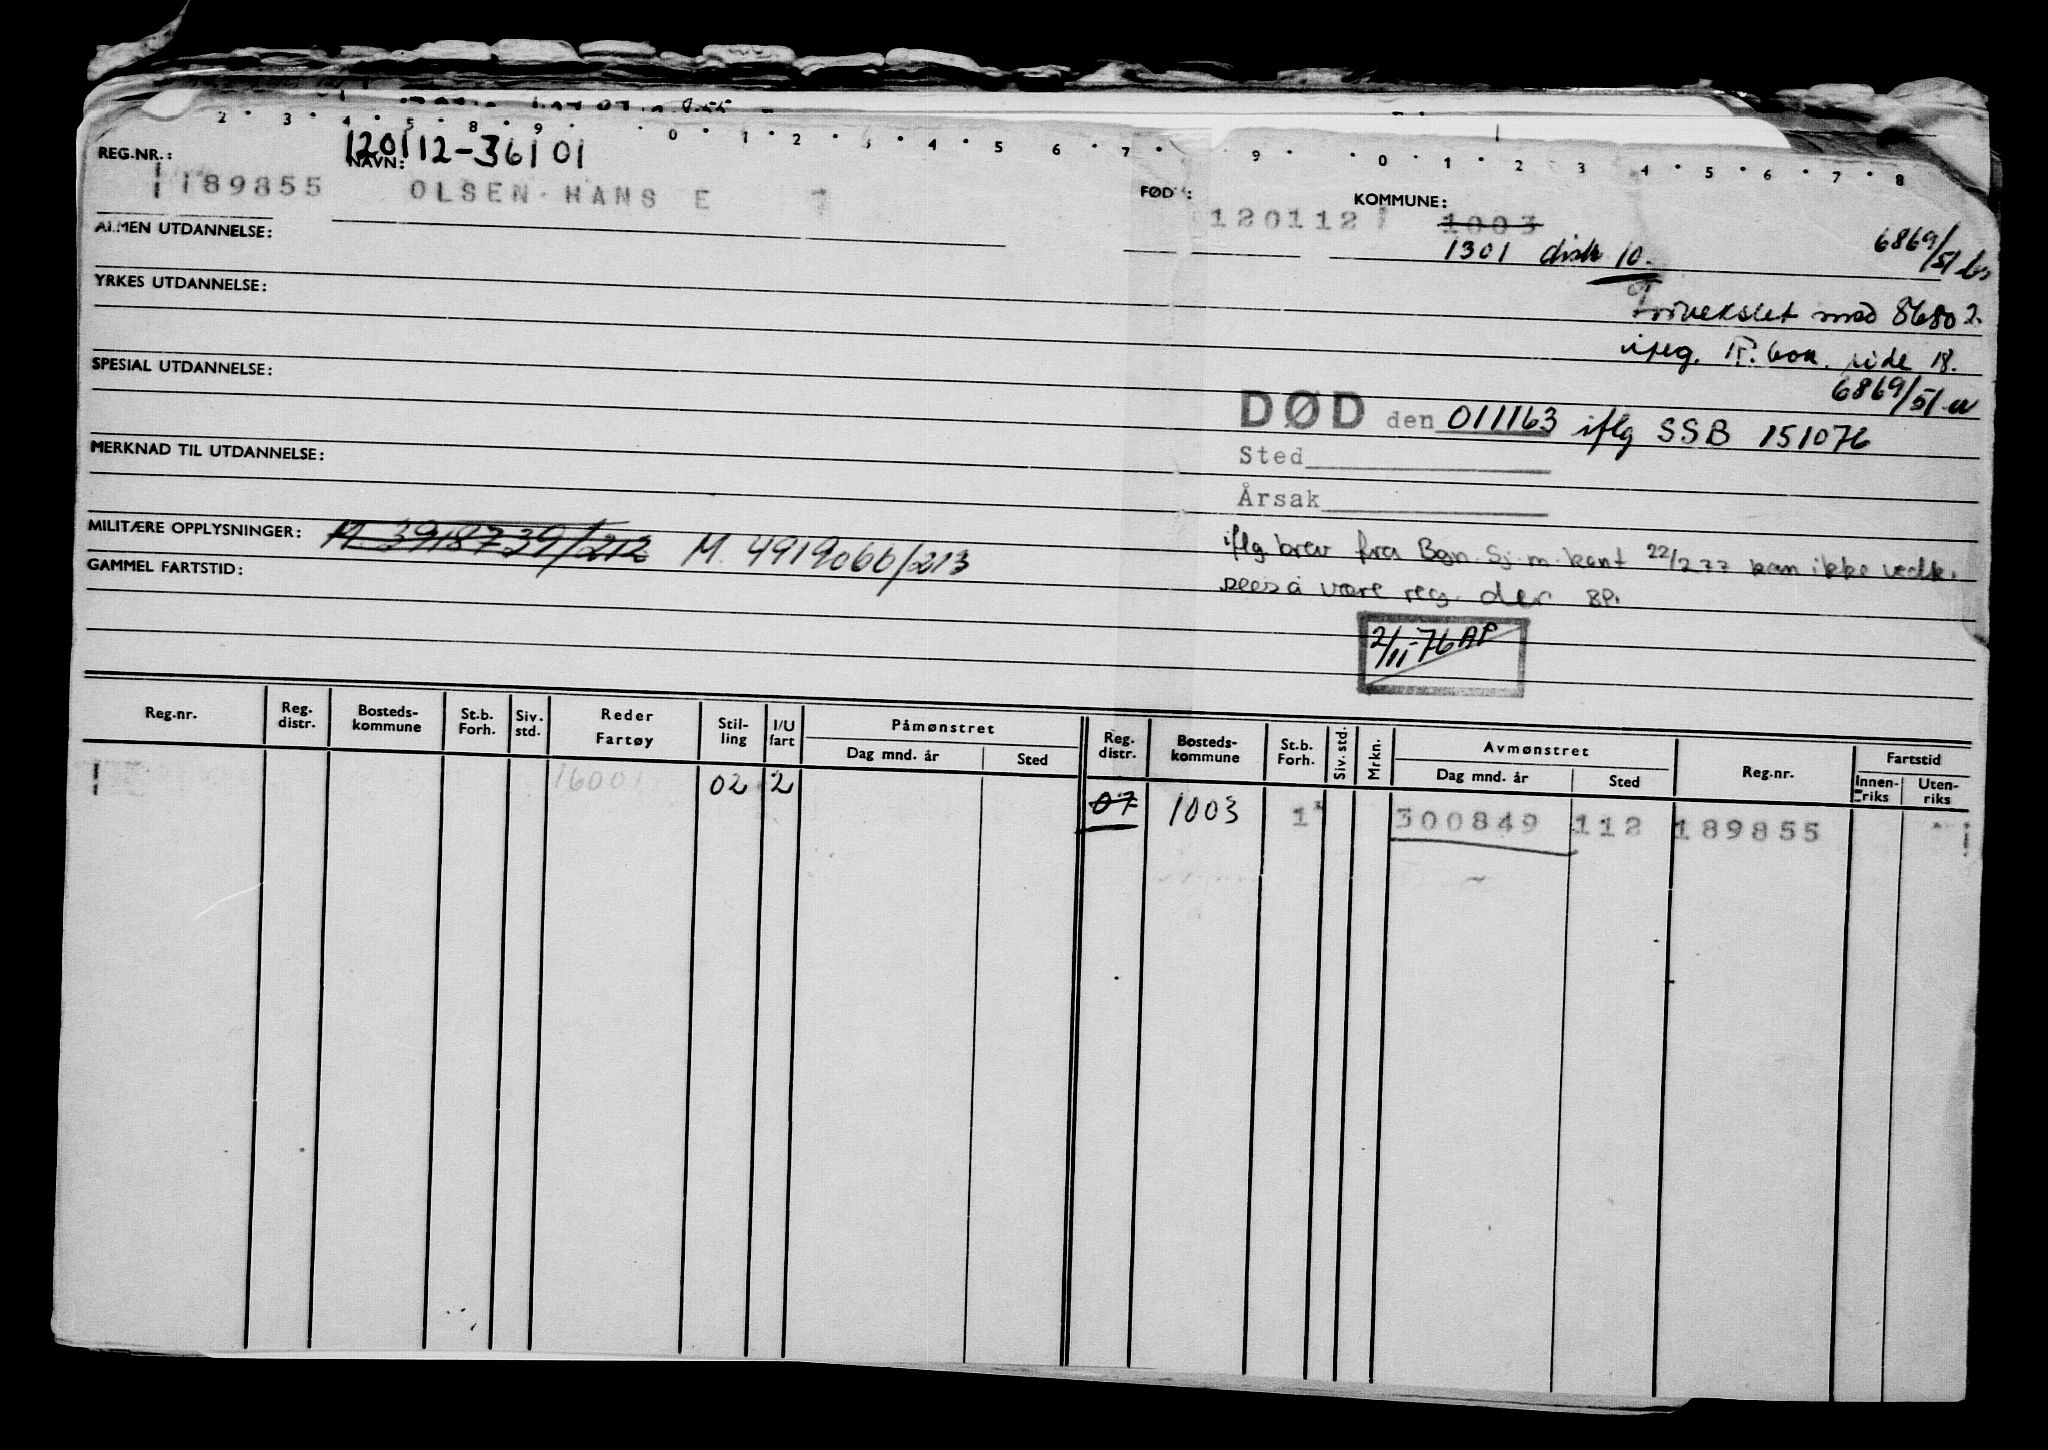 2 3 4 5 8 9 0 1 2 3 4 5 6 7 9 0 1 2 3 4 5 6 7 8
REG.NR.: NAVN: 120112-36101 FØDT: KOMMUNE:
189855 OLSEN HANS E 120112 1003
ALMEN UTDANNELSE: 1301 distr 10. 6869/51
YRKES UTDANNELSE:
med 86802.
side 18.
SPESIAL UTDANNELSE: 6869/51
DØD den 011163 iflg SSB 151076
MERKNAD TIL UTDANNELSE: Sted
Årsak
MILITÆRE OPPLYSNINGER: M. 3918739/212 M. 4919066/213
iflg brev fra Bgn. Sj.m.kont 22/2 77 kan ikke vedk.
GAMMEL FARTSTID: sees å være reg. der
2/11-76 AP
Reg.nr. Reg. distr. Bosteds-kommune St.b. Forh. Siv. std. Reder Fartøy Stil-ling I/U fart Påmønstret Dag mnd. år Sted Reg. distr. Bosteds-kommune St.b. Forh. Siv. std. Mrkn. Avmønstret Dag mnd. år Sted Reg.nr. Fartstid Innen-riks Uten-riks
16001 02 2 07 1003 1 300849 112 189855